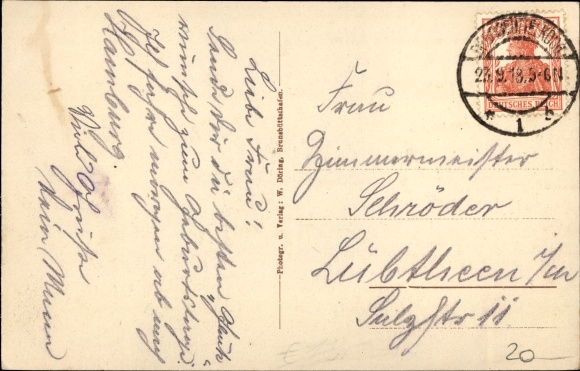 Liebe Frau!
Sende dir die besten Glück
wünsche zum Geburtstage.
Ich fahre morgen ab nach
Hamburg.
Viel Grüße
dein Mann
Photogr. u. Verlag: W. Döring, Brunsbüttelhafen.
23.9.18.5-6N
1
DEUTSCHES REICH
Frau
Zimmermeister
Schröder
Lübtheen i/m
Sulzstr 11
20-